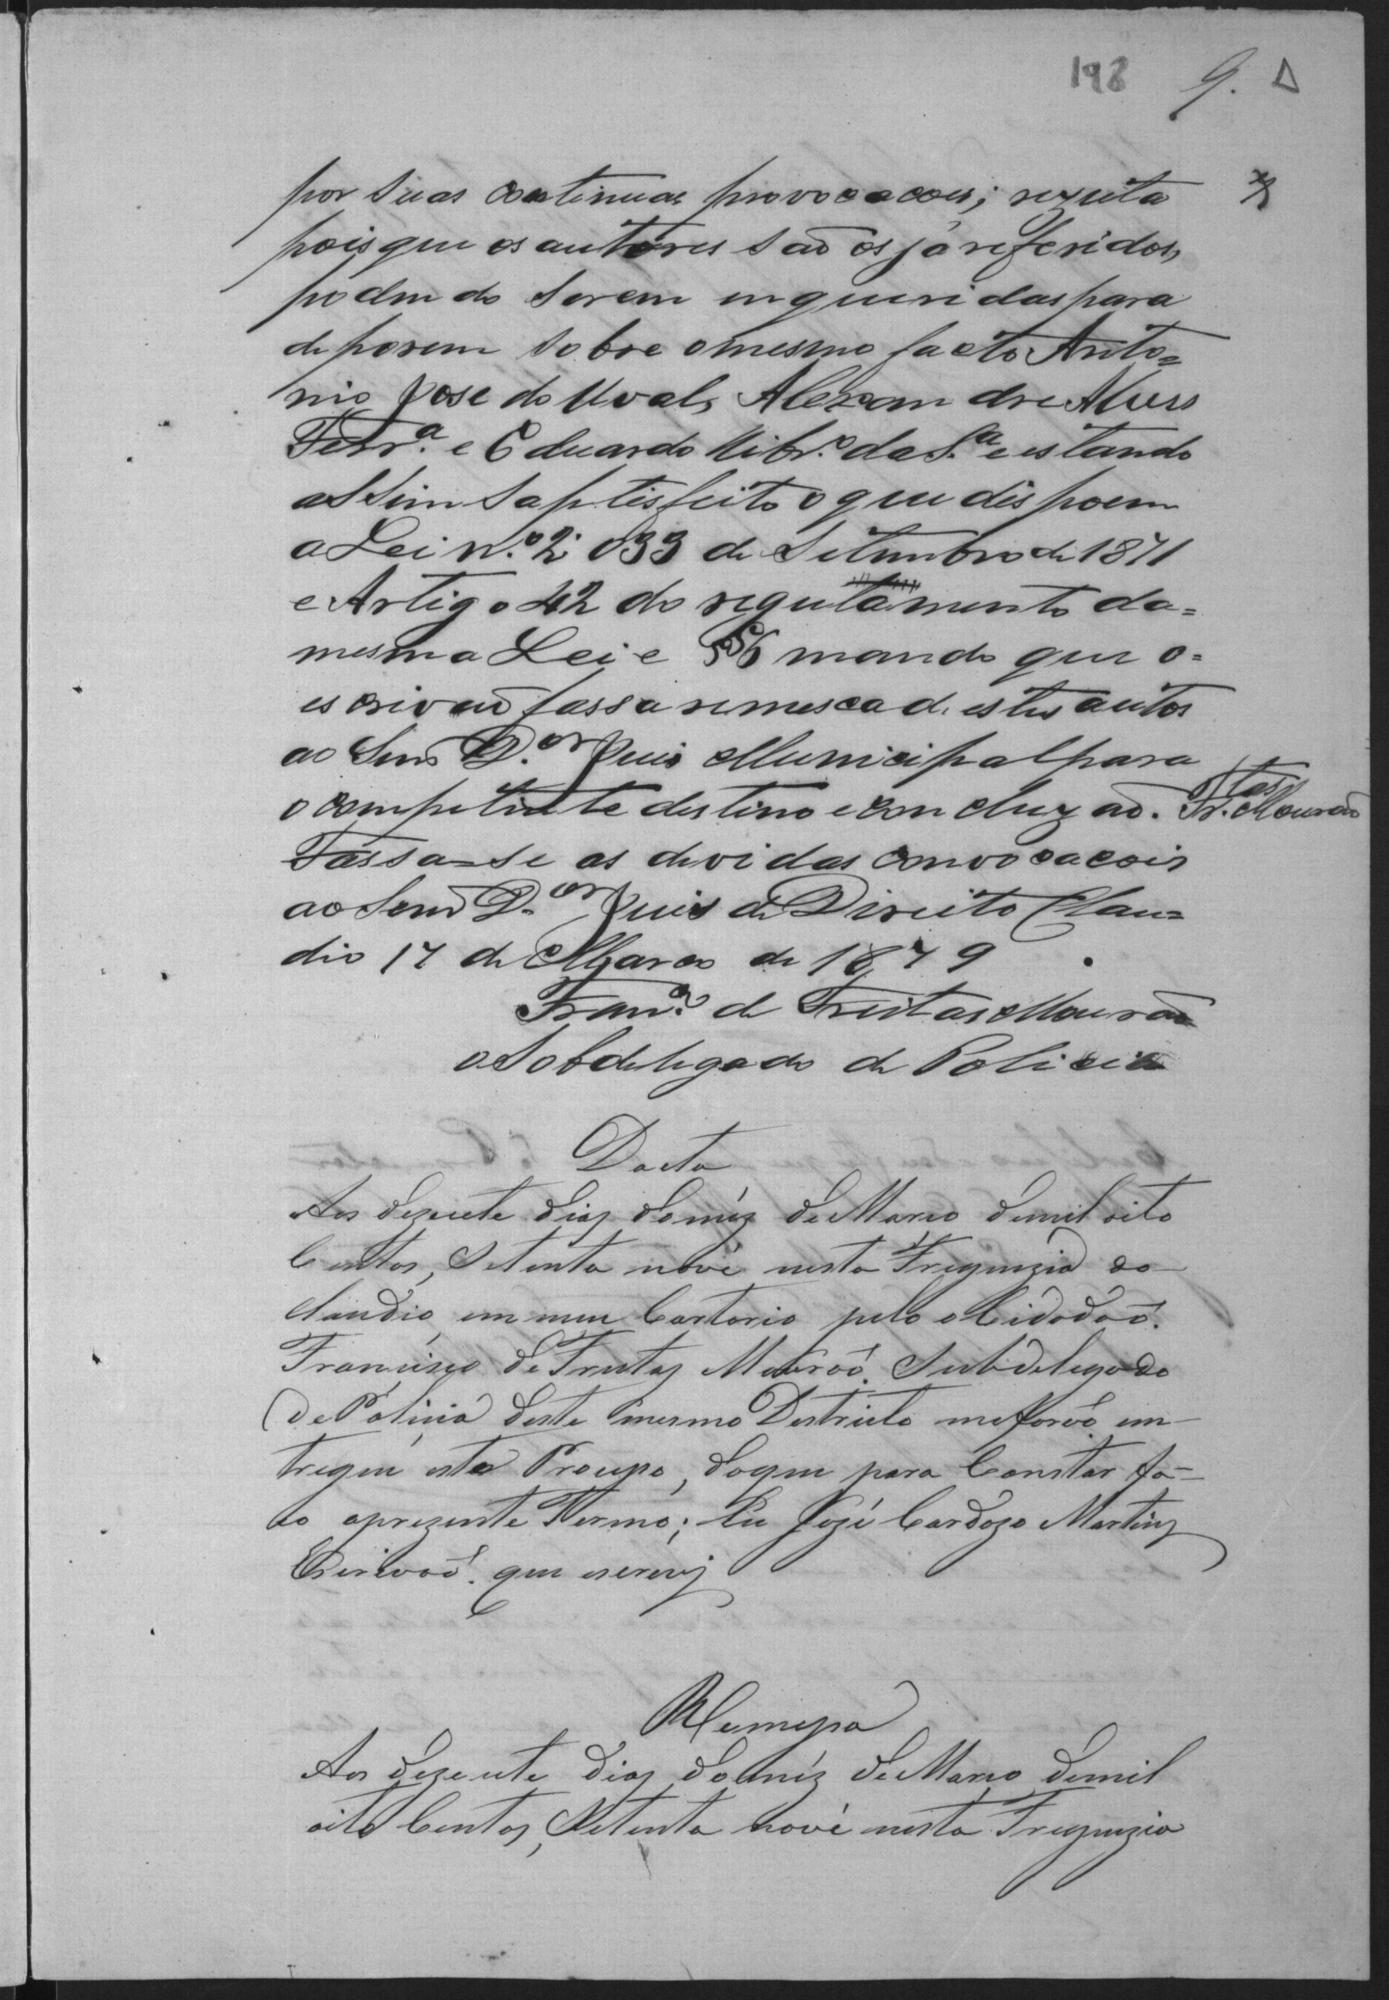 198 9.
por suas continuas provocacois; rezulta
pois que os autores são os já referidos,
podendo serem inqueridas para
deporem sobre o mesmo facto Anto=
nio Jose do Valle, Alexandre Alves
Ferr.ª e Eduardo Ribr.º da S.ª e estando
assim saptisfeito o que dispoem
a Lei n.º 2:033 de Setembro de 1871
e Artigo 42 do regulamento da=
mesma Lei e mando que o=
escrivaõ fassa remesca d. estes autos
ao Senr D.or Juis Municipal para
o competente destino e concluzaõ. Fr.tas Mouraõ
Fassa-se as devidas convocacois
ao Senr D.or Juis de Direito Clau=
dio 17 de Marco de 1879.
Fran.co de Freitas Mouraõ
o Sobdelegado de Policia
Dacta
Aos dezecete dias do méz de Marco demil oito
Centos, Setenta nóve nesta Freguezia do
Claudio em meu Cartorio pelo o Cidadaõ.
Francisco de Freitas Mouraõ. Subdelegado
de Policia deste mesmo Destricto me foraõ en
tregue este Proceço, do que para Constar fa-
ço o prezente Termo; Eu José Cardozo Martins
Escrivaõ. que escrevi
Remeça
Aos dezecete dias do méz de Março demil
oito Centos, Setenta nové nesta Freguezia